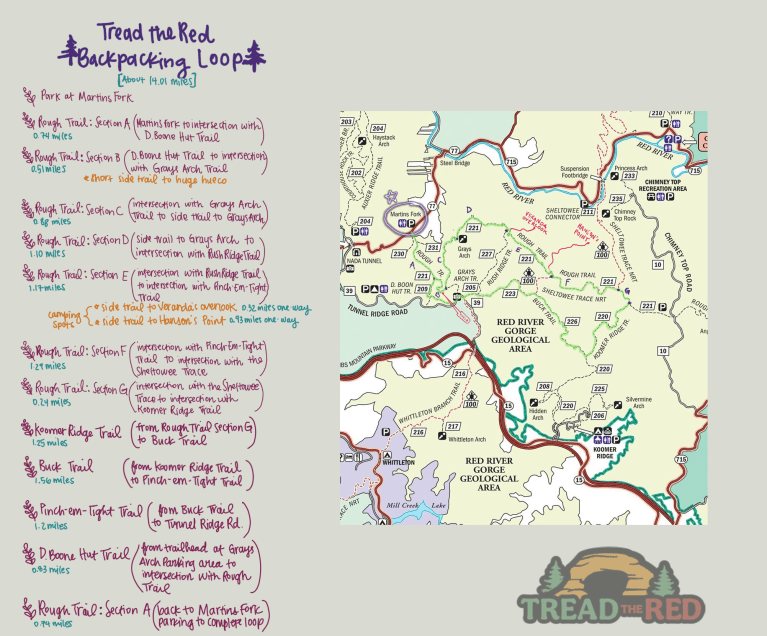 Tread the Red
Backpacking Loop
[About 14.01 miles]
Park at Martins Fork
Rough Trail: Section A (Martins Fork to intersection with
D. Boone Hut Trail)
0.74 miles
Rough Trail: Section B (D. Boone Hut Trail to intersection
with Grays Arch Trail)
0.51 miles
short side trail to huge hueco
Rough Trail: Section C (intersection with Grays Arch
Trail to side trail to Grays Arch)
0.88 miles
Rough Trail: Section D (side trail to Grays Arch to
intersection with Rush Ridge Trail)
1.10 miles
Rough Trail: Section E (intersection with Rush Ridge Trail
to intersection with Pinch-Em-Tight
Trail)
1.17 miles
camping spots
side trail to Veranda's overlook 0.32 miles one way
side trail to Hanson's Point 0.93 miles one-way
Rough Trail: Section F (intersection with Pinch-Em-Tight
Trail to intersection with the
Sheltowee Trace)
1.29 miles
Rough Trail: Section G (intersection with the Sheltowee
Trace to intersection with
Koomer Ridge Trail)
0.24 miles
Koomer Ridge Trail (from Rough Trail Section G
to Buck Trail)
1.25 miles
Buck Trail (from Koomer Ridge Trail
to Pinch-em-Tight Trail)
1.56 miles
Pinch-em-Tight Trail (from Buck Trail
to Tunnel Ridge Rd.)
1.2 miles
D. Boone Hut Trail (from trailhead at Grays
Arch Parking area to
intersection with Rough
Trail)
0.93 miles
Rough Trail: Section A (back to Martins Fork
parking to complete loop)
0.74 miles
210
203
204
Haystack
Arch
202
77
Steel Bridge
715
RED RIVER
RED RIVER
715
Suspension
Footbridge
Princess Arch
233
CHIMNEY TOP
RECREATION AREA
SHELTOWEE
CONNECTOR
211
235
Chimney
Top Rock
204
Martins Fork
77
D
NADA TUNNEL
230
231
221
Grays
Arch
227
ROUGH TRAIL
RUSH RIDGE TR.
GRAYS
ARCH TR.
100
100
SHELTOWEE TRACE NRT
CHIMNEY TOP ROAD
10
ROUGH TR.
C
A
221
D. BOONE
HUT TR.
209
205
39
39
TUNNEL RIDGE ROAD
223
BUCK TRAIL
ROUGH TRAIL
F
SHELTOWEE TRACE NRT
221
G
226
220
KOOMER RIDGE TR.
10
RED RIVER
GORGE
GEOLOGICAL
AREA
MOUNTAIN PARKWAY
15
216
WHITTLETON BRANCH TRAIL
100
216
217
Whittleton Arch
WHITTLETON
15
208
220
Hidden
Arch
220
225
206
Silvermine
Arch
KOOMER
RIDGE
715
15
RED RIVER
GORGE
GEOLOGICAL
AREA
Mill Creek Lake
TREAD THE RED